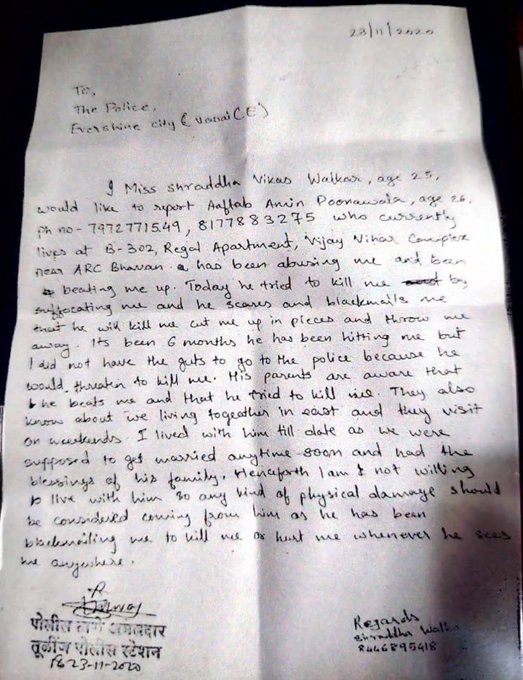 23/11/2020
To,
The Police,
Evershine city (Vasai (E)
I Miss shraddha Vikas Walkar, age 25,
would like to report Aaftab Amin Poonawala, age 26,
ph no- 7972771549, 8177883275 who currently
lives at B-302, Regal Apartment, Vijay Vihar Complex
near ARC Bhavan. has been abusing me and been
beating me up. Today he tried to kill me by
suffocating me and he scares and blackmails me
that he will kill me cut me up in pieces and throw me
away. Its been 6 months he has been hitting me but
I did not have the guts to go to the police because he
would threaten to kill me. His parents are aware that
he beats me and that he tried to kill me. They also
know about we living togeather in east and they visit
on weekends. I lived with him till date as we were
supposed to get married anytime soon and had the
blessings of his family. Henceforth I am not willing
to live with him so any kind of physical damage should
be considered coming from him as he has been
blackmailing me to kill me or hurt me whenever he sees
me anywhere.
पोलीस ठाणे अंमलदार
तुळींज पोलीस स्टेशन
23-11-2020
Regards
Shraddha Walkar
8446895418